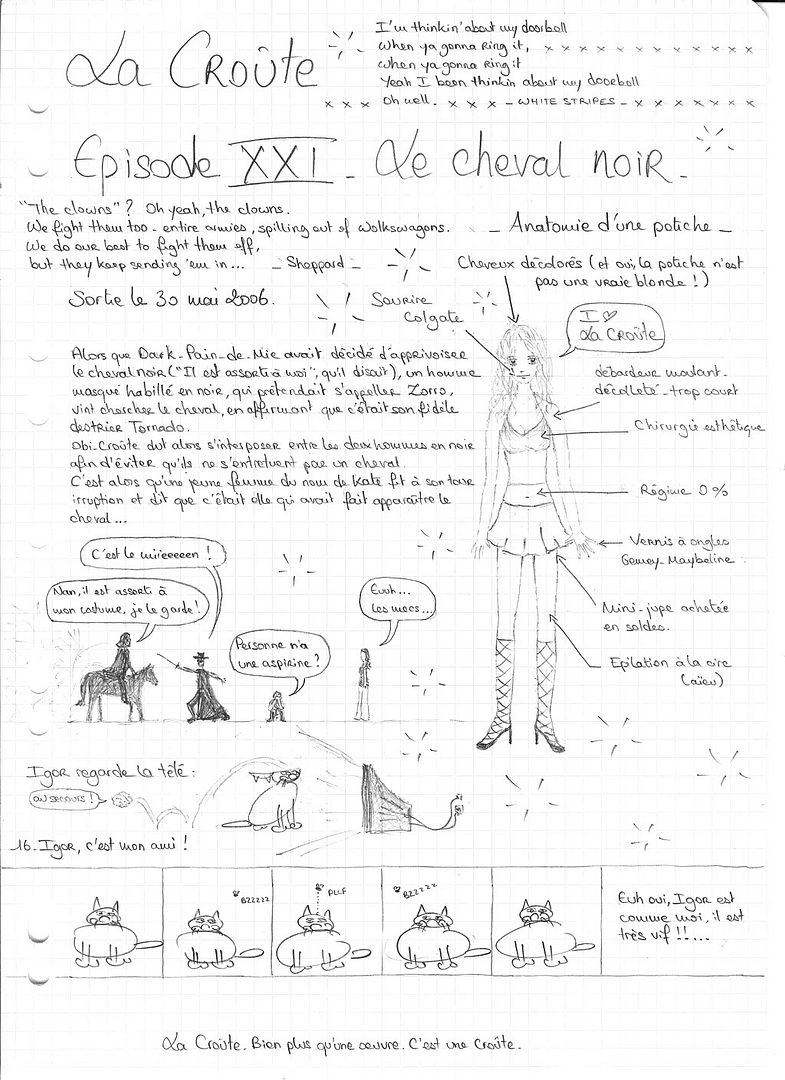 La Croûte
I'm thinkin' about my doorbell
When ya gonna ring it,
when ya gonna ring it
Yeah I been thinkin about my doorbell
oh well. - WHITE STRIPES -
Episode XXI - Le cheval noir -
"The clowns"? Oh yeah, the clowns.
We fight them too - entire armies, spilling out of Wolkswagons.
We do our best to fight them off,
but they keep sending 'em in... - Sheppard -
Sortie le 30 mai 2006.
- Anatomie d'une potiche -
Cheveux décolorés (et oui, la potiche n'est
pas une vraie blonde !)
Sourire
Colgate
I ♡
La CROÛTE
débardeur moulant -
décolleté - trop court
Chirurgie esthétique
Régime 0 %
Vernis à ongles
Gemey-Maybeline
Mini-jupe achetée
en soldes.
Epilation à la cire
(aïeu)
Alors que Dark-Pain-de-Mie avait décidé d'apprivoiser
le cheval noir ("Il est assorti à moi", qu'il disait), un homme
masqué habillé en noir, qui prétendait s'appeller Zorro,
vint chercher le cheval, en affirmant que c'était son fidèle
destrier Tornado.
Obi-Croûte dut alors s'interposer entre les deux hommes en noir
afin d'éviter qu'ils ne s'entretuent par un cheval.
C'est alors qu'une jeune femme du nom de Kate fit à son tour
irruption et dit que c'était elle qui avait fait apparaître le
cheval...
C'est le miieeeeen !
Nan, il est assorti à
mon costume, je le garde !
Personne n'a
une aspirine ?
Euuh...
les mecs...
Igor regarde la télé :
au secours !
16. Igor, c'est mon ami !
BZZZZZ
PLLF
BZZZZZ
Euh oui, Igor est
comme moi, il est
très vif !!...
La Croûte. Bien plus qu'une œuvre. C'est une croûte.